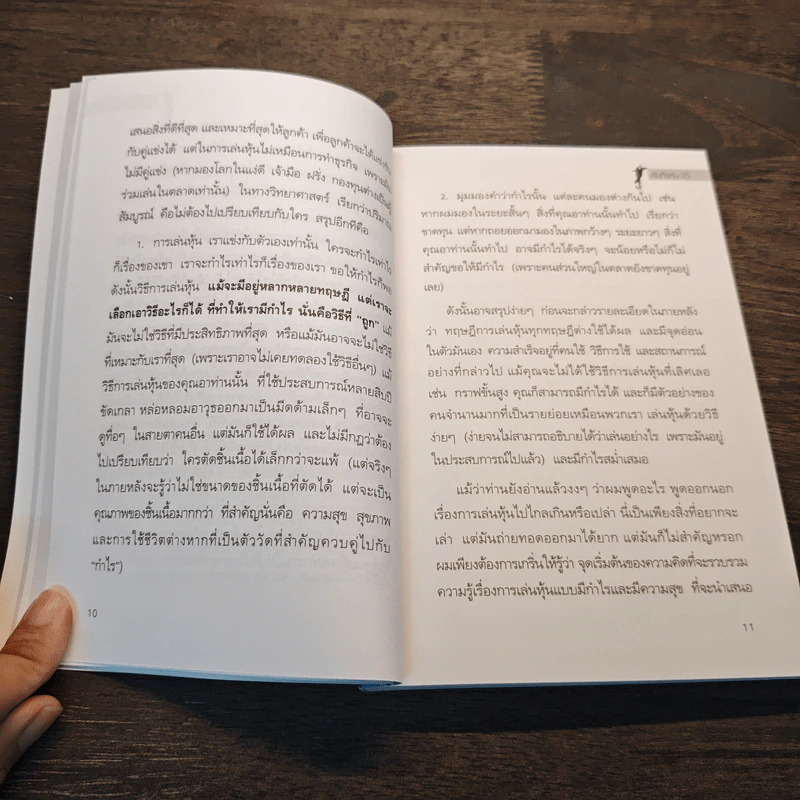 เสนอสิ่งที่ดีที่สุด และเหมาะที่สุดให้ลูกค้า เพื่อลูกค้าจะได้แข่งขัน
กับคู่แข่งได้ แต่ในการเล่นหุ้นไม่เหมือนการทำธุรกิจ เพราะมัน
ไม่มีคู่แข่ง (หากมองโลกในแง่ดี เจ้ามือ ฝรั่ง กองทุนต่างเป็น
ร่วมเล่นในตลาดเท่านั้น) ในทางวิทยาศาสตร์ เรียกว่าปริมาณ
สัมบูรณ์ คือไม่ต้องไปเปรียบเทียบกับใคร สรุปอีกทีคือ
1. การเล่นหุ้น เราแข่งกับตัวเองเท่านั้น ใครจะกำไรเท่าไร
ก็เรื่องของเขา เราจะกำไรเท่าไรก็เรื่องของเรา ขอให้กำไรก็พอ
ดังนั้นวิธีการเล่นหุ้น แม้จะมีอยู่หลากหลายทฤษฎี แต่เราจะ
เลือกเอาวิธีอะไรก็ได้ ที่ทำให้เรามีกำไร นั่นคือวิธีที่ "ถูก" แม้
มันจะไม่ใช่วิธีที่มีประสิทธิภาพที่สุด หรือแม้มันอาจจะไม่ใช่วิธี
ที่เหมาะกับเราที่สุด (เพราะเราอาจไม่เคยทดลองใช้วิธีอื่นๆ) แม้
วิธีการเล่นหุ้นของคุณอาท่านนั้น ที่ใช้ประสบการณ์หลายสิบปี
ขัดเกลา หล่อหลอมอาวุธออกมาเป็นมีดด้ามเล็กๆ ที่อาจจะ
ดูทื่อๆ ในสายตาคนอื่น แต่มันก็ใช้ได้ผล และไม่มีกฎว่าต้อง
ไปเปรียบเทียบว่า ใครตัดชิ้นเนื้อได้เล็กกว่าจะแพ้ (แต่จริงๆ
ในภายหลังจะรู้ว่าไม่ใช่ขนาดของชิ้นเนื้อที่ตัดได้ แต่จะเป็น
คุณภาพของชิ้นเนื้อมากกว่า ที่สำคัญนั่นคือ ความสุข สุขภาพ
และการใช้ชีวิตต่างหากที่เป็นตัววัดที่สำคัญควบคู่ไปกับ
"กำไร")
10
2. มุมมองคำว่ากำไรนั้น แต่ละคนมองต่างกันไป เช่น
หากผมมองในระยะสั้นๆ สิ่งที่คุณอาท่านนั้นทำไป เรียกว่า
ขาดทุน แต่หากถอยออกมามองในภาพกว้างๆ ระยะยาวๆ สิ่งที่
คุณอาท่านนั้นทำไป อาจมีกำไรได้จริงๆ จะน้อยหรือไม่ก็ไม่
สำคัญขอให้มีกำไร (เพราะคนส่วนใหญ่ในตลาดยังขาดทุนอยู่
เลย)
ดังนั้นอาจสรุปง่ายๆ ก่อนจะกล่าวรายละเอียดในภายหลัง
ว่า ทฤษฎีการเล่นหุ้นทุกทฤษฎีต่างใช้ได้ผล และมีจุดอ่อน
ในตัวมันเอง ความสำเร็จอยู่ที่คนใช้ วิธีการใช้ และสถานการณ์
อย่างที่กล่าวไป แม้คุณจะไม่ได้ใช้วิธีการเล่นหุ้นที่เลิศเลอ
เช่น กราฟขั้นสูง คุณก็สามารถมีกำไรได้ และก็มีตัวอย่างของ
คนจำนานมากที่เป็นรายย่อยเหมือนพวกเรา เล่นหุ้นด้วยวิธี
ง่ายๆ (ง่ายจนไม่สามารถอธิบายได้ว่าเล่นอย่างไร เพราะมันอยู่
ในประสบการณ์ไปแล้ว) และมีกำไรสม่ำเสมอ
แม้ว่าท่านยังอ่านแล้วงงๆ ว่าผมพูดอะไร พูดออกนอก
เรื่องการเล่นหุ้นไปไกลเกินหรือเปล่า นี่เป็นเพียงสิ่งที่อยากจะ
เล่า แต่มันถ่ายทอดออกมาได้ยาก แต่มันก็ไม่สำคัญหรอก
ผมเพียงต้องการเกริ่นให้รู้ว่า จุดเริ่มต้นของความคิดที่จะรวบรวม
ความรู้เรื่องการเล่นหุ้นแบบมีกำไรและมีความสุข ที่จะนำเสนอ
11